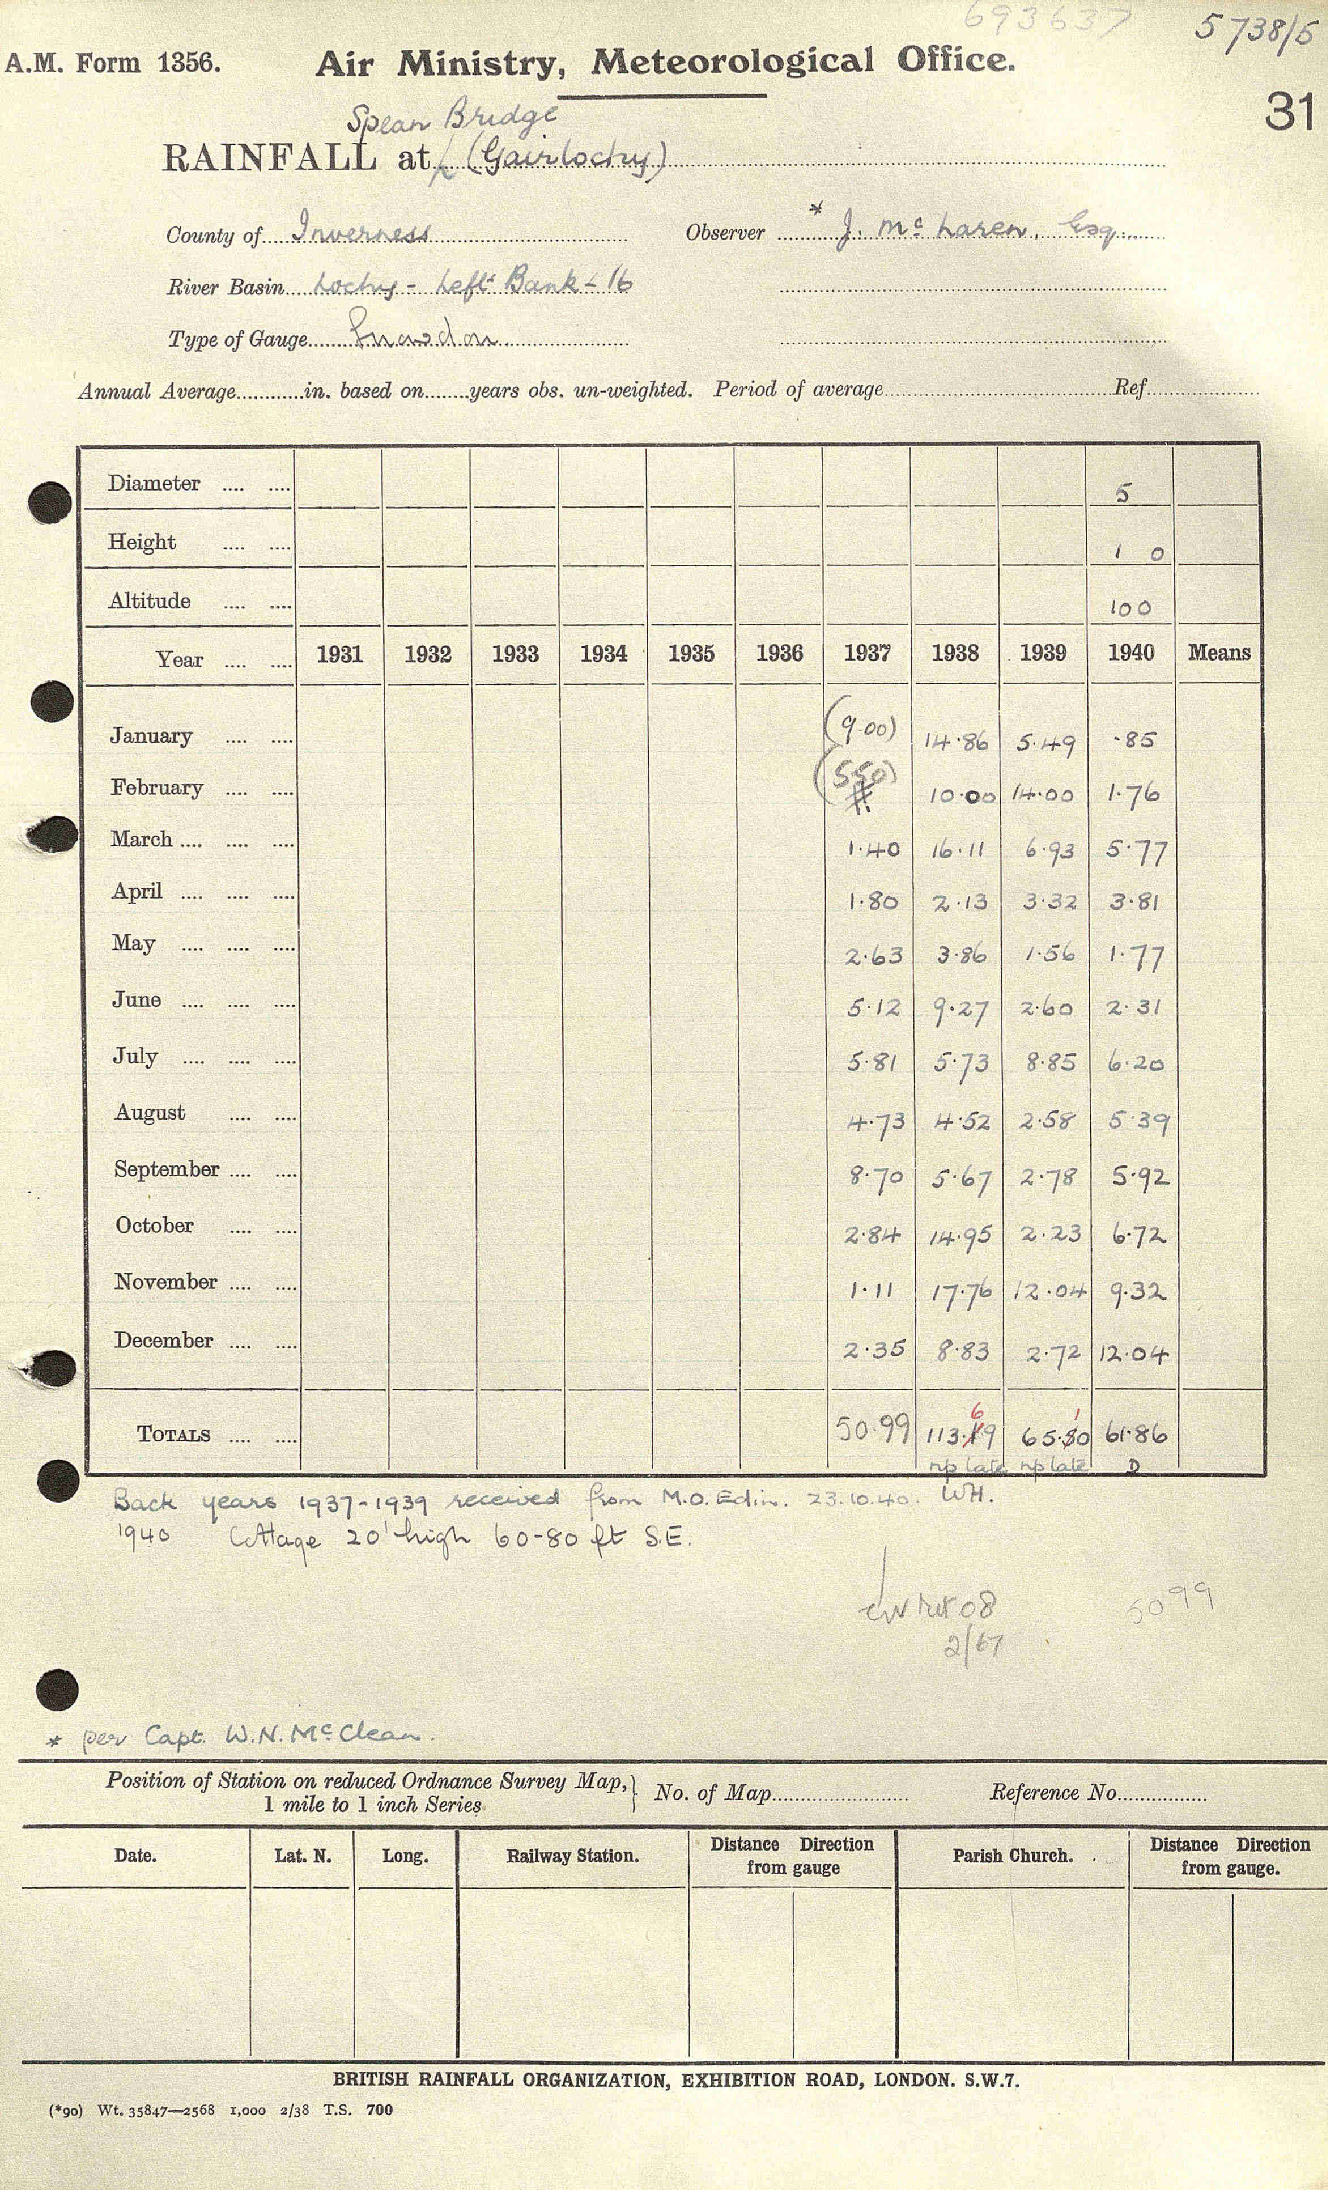 693637
5738/5
A.M. Form 1356. Air Ministry, Meteorological Office.
31
Spean Bridge
RAINFALL at (Gairlochy)
County of Inverness Observer * J. McLaren, Esq.
River Basin Lochy - Left Bank - 16
Type of Gauge Snowdon
Annual Average in. based on years obs. un-weighted. Period of average Ref
Diameter 5
Height 1 0
Altitude 100
Year 1931 1932 1933 1934 1935 1936 1937 1938 1939 1940 Means
January (9.00) 14.86 5.49 .85
February (5.50) 10.00 14.00 1.76
March 1.40 16.11 6.93 5.77
April 1.80 2.13 3.32 3.81
May 2.63 3.86 1.56 1.77
June 5.12 9.27 2.60 2.31
July 5.81 5.73 8.85 6.20
August 4.73 4.52 2.58 5.39
September 8.70 5.67 2.78 5.92
October 2.84 14.95 2.23 6.72
November 1.11 17.76 12.04 9.32
December 2.35 8.83 2.72 12.04
6 1
TOTALS 50.99 113.19 65.80 61.86
np late np late D
Back years 1937-1939 received from M.O. Edin. 23.10.40. WH.
1940 Cottage 20' high 60-80 ft S.E.
08
2/67
5099
* per Capt. W.N. McClean.
Position of Station on reduced Ordnance Survey Map, } No. of Map Reference No.
1 mile to 1 inch Series
Date. Lat. N. Long. Railway Station. Distance Direction from gauge Parish Church. Distance Direction from gauge.
BRITISH RAINFALL ORGANIZATION, EXHIBITION ROAD, LONDON. S.W.7.
(*90) Wt. 35847—2568 1,000 2/38 T.S. 700